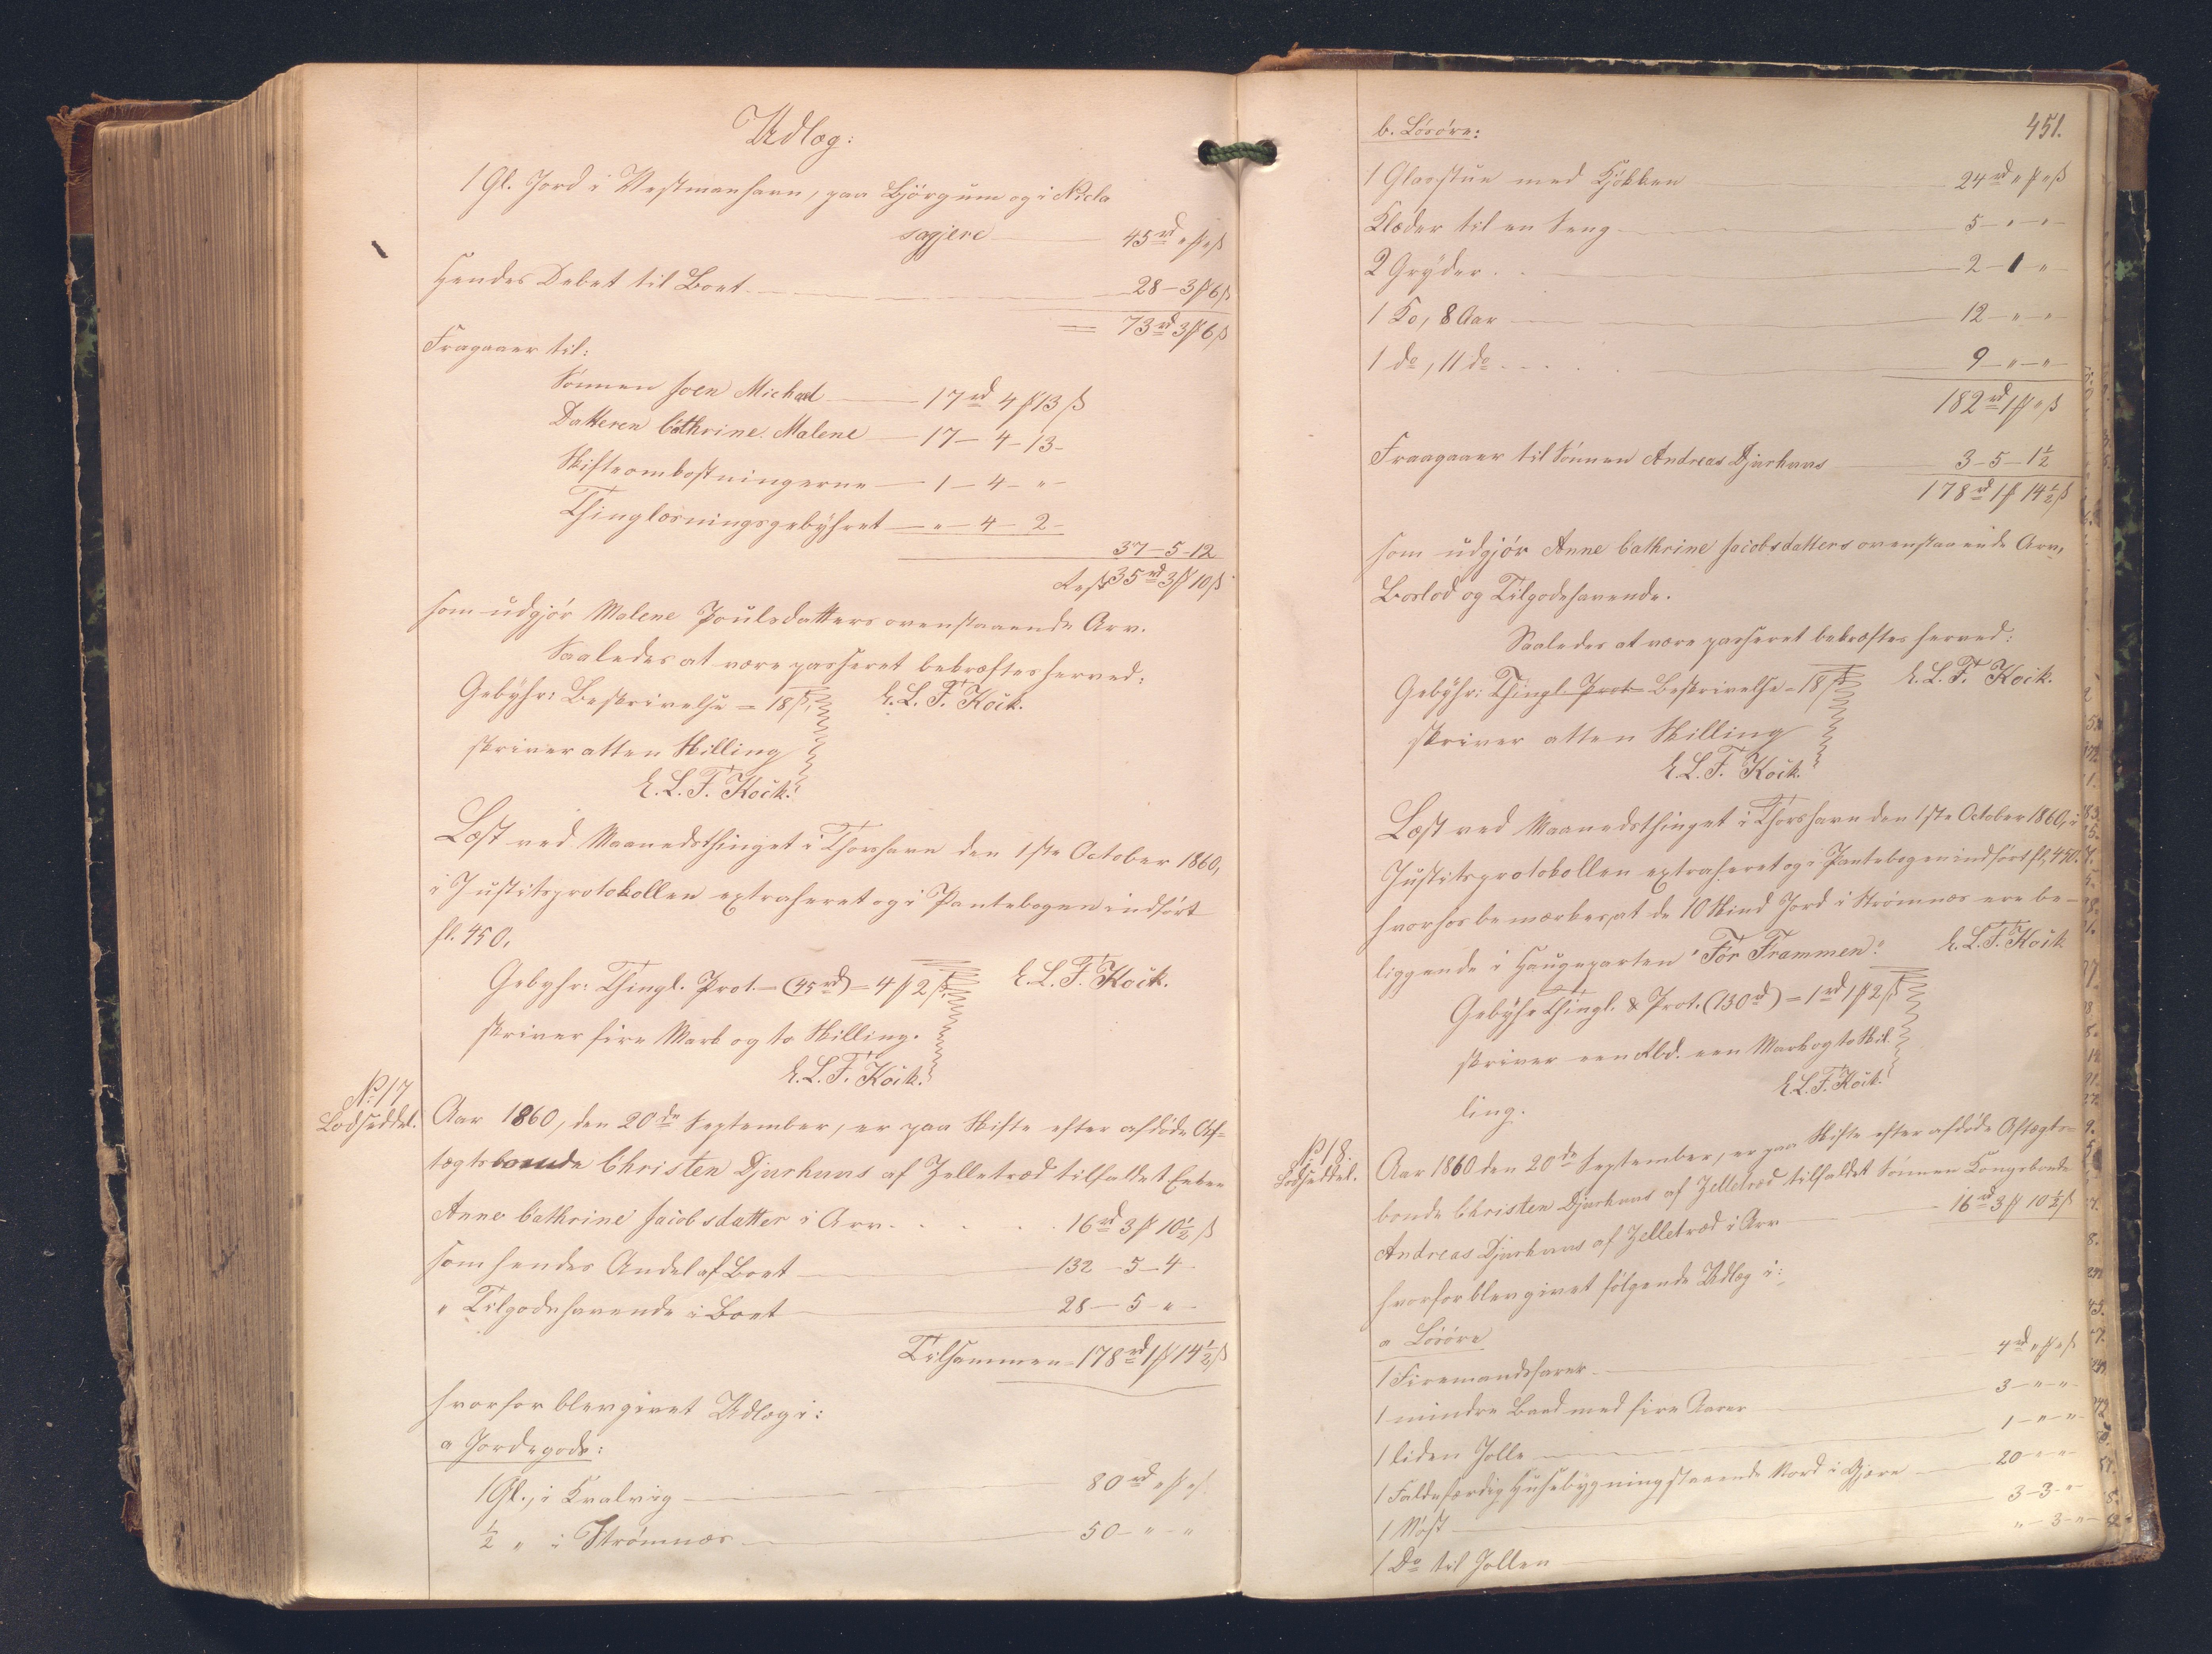 Udlæg:
1 Gl. Jord i Vestmanhavn, paa Björgum og i Nicla
sagjere — 45 rd „ ß „ ß
Hendes Debet til Boet — 28 – 3 ß 6 ß
= 73 rd 3 ß 6 ß
Fragaaer til:
Sönnen Joen Michael — 17 rd 4 ß 13 ß
Datteren Cathrine Malene — 17 – 4 – 13 –
Skifteomkostningerne — 1 – 4 – „ –
Thinglæsningsgebyhret — „ – 4 – 2 –
37 – 5 – 12
Rest 35 rd 3 ß 10 ß
som udgjör Malene Poulsdatters ovenstaaende Arv.
Saaledes at være passeret bekræftes herved:
Gebyhr: Beskrivelse = 18 ß, E. L. F. Kock.
skriver atten Skilling
E. L. F. Kock.
Læst ved Maanedsthinget i Thorshavn den 1ste October 1860,
i Justitsprotokollen extraheret og i Pantebogen indfört
fl. 450.
Gebyhr: Thingl. Prot. – (45 rd) = 4 ß 2 ß. E. L. F. Kock.
skriver fire Mark og to Skilling.
E. L. F. Kock.
No 17
Lodseddel.
Aar 1860, den 20de September, er paa Skifte efter afdöde Af-
tægtsbonde Christen Djurhuus af Zelletræd tilfaldet Enken
Anne Cathrine Jacobsdatter i Arv . . . . 16 rd 3 ß 10½ ß
som hendes Andel af Boet — 132 – 5 – 4 –
„ Tilgodehavende i Boet — 28 – 5 – „ –
Tilsammen = 178 rd 1 ß 14½ ß
hvorfor blev givet Udlæg i:
a Jordegods:
1 Gl., i Kvalvig — 80 rd „ ß „ ß
½ „ i Strömnæs — 50 – „ – „
451.
b. Lösöre:
1 Glasstue med Kjökken — 24 rd „ ß „ ß
Klæder til en Seng — 5 – „ – „ –
2 Gryder . . — 2 – 1 – „ –
1 Ko, 8 Aar — 12 – „ – „ –
1 do, 11 do . . . . — 9 – „ – „
182 rd 1 ß „ ß
Fraagaaer til Sönnen Andreas Djurhuus — 3 – 5 – 1½
178 rd 1 ß 14½ ß
som udgjör Anne Cathrine Jacobsdatters ovenstaaende Arv,
Boslod og Tilgodehavende.
Saaledes at være passeret bekræftes herved:
Gebyhr: Thingl. Prot. Beskrivelse = 18 ß E. L. F. Kock.
skriver atten Skilling
E. L. F. Kock.
Læst ved Maanedsthinget i Thorshavn den 1ste October 1860, i
Justitsprotokollen extraheret og i Pantebogen indfört fl. 450.
hvorhos bemærkes, at de 10 Skind Jord i Strömnæs ere be-
liggende i Haugeparten "För Frammen." E. L. F. Kock
Gebyhr Thingl. & Prot. (130 rd) = 1 rd 1 ß 2 ß
skriver een Rbd. een Mark og to Skil-
ling.
E. L. F. Kock.
No 18.
Lodseddel.
Aar 1860 den 20de September, er paa Skifte efter afdöde Aftægts-
bonde Christen Djurhuus af Zelletræd tilfaldet Sönnen Kongsbonde
Andreas Djurhuus af Zelletræd i Arv — 16 rd 3 ß 10½ ß
hvorfor blev givet fölgende Udlæg i:
a Lösöre
1 Firemandsfarer — 4 rd „ ß „ ß
1 mindre Baad med fire Aarer — 3 – „ – „
1 liden Jolle — 1 – „ – „
1 Faldefærdig Husebygning staaende Nord i Gjære — 20 – „ – „
1 Nöst — 3 – 3 – „
1 Do til Jollen — „ – 3 – „ –